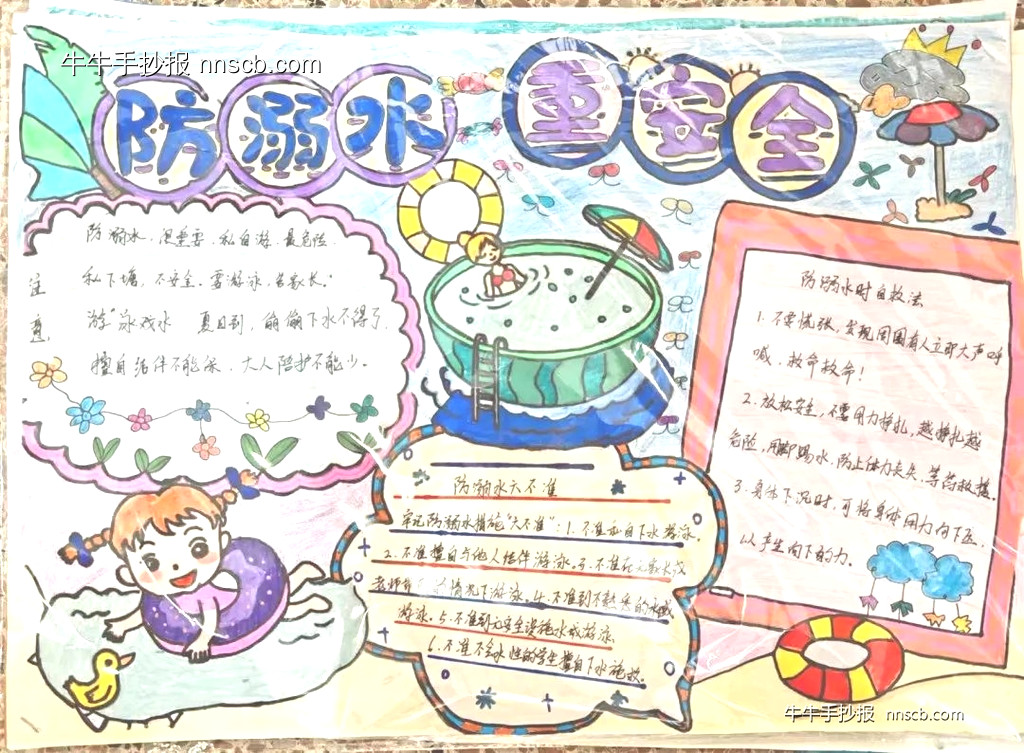 牛牛手抄报 nnscb.com
防溺水 重安全
注意
防溺水,很重要、私自游、最危险.
私下塘,不安全.要游泳,告家长.
游泳戏水 夏日到,偷偷下水不得了
擅自结伴不能采、大人陪护不能少。
防溺水六不准
牢记防溺水措施"六不准":1.不准私自下水游泳.
2.不准擅自与他人结伴游泳.3.不准在无家长或
老师 情况下游泳.4.不准到不熟悉的水域
游泳。5.不准到无安全设施水域游泳.
6.不准不会水性的学生擅自下水施救.
防溺水时自救法
1.不要慌张,发现周围有人立即大声呼
喊、救命救命!
2.放松安全,不要用力挣扎,越挣扎越
危险,用脚踢水,防止体力丧失,等药救援.
3.身体下沉时,可将身体用力向下压.
以产生向下的力.
牛牛手抄报 nnscb.com